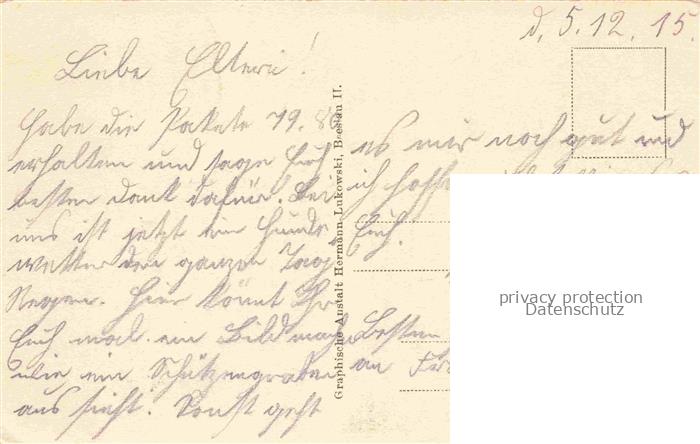 d. 5.12.15.
Liebe Eltern!
habe die Pakete 79. 80
erhalten und sage Euch
besten Dank dafür. Bei
uns ist jetzt ein Hunde
wetter den ganzen Tag
Regen. Hier könnt Ihr
Euch mal ein Bild machen
wie ein Schützengraben
aus sieht. Sonst geht
es mir noch gut und
ich hoffe
Euch.
Besten
an
Graphische Anstalt Hermann Lukowski, Breslau II.
privacy protection
Datenschutz